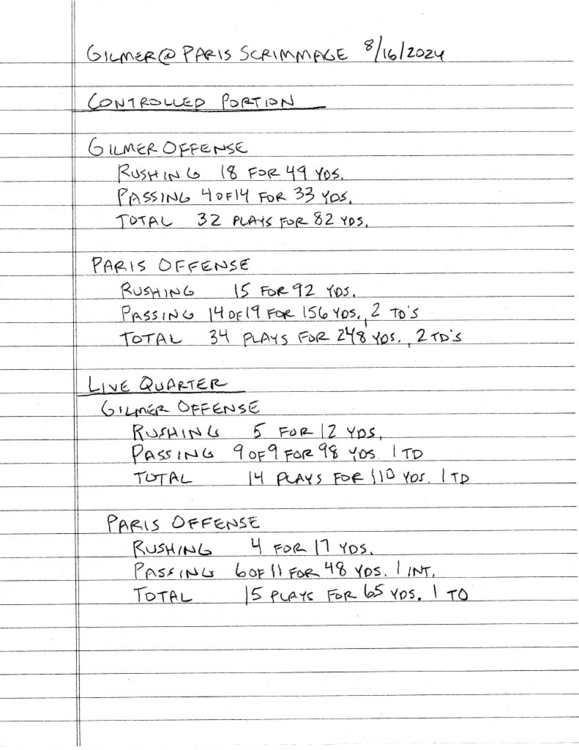 GILMER @ PARIS SCRIMMAGE 8/16/2024
CONTROLLED PORTION
GILMER OFFENSE
RUSHING 18 FOR 49 YDS.
PASSING 4 OF 14 FOR 33 YDS.
TOTAL 32 PLAYS FOR 82 YDS.
PARIS OFFENSE
RUSHING 15 FOR 92 YDS.
PASSING 14 OF 19 FOR 156 YDS., 2 TD'S
TOTAL 34 PLAYS FOR 248 YDS., 2 TD'S
LIVE QUARTER
GILMER OFFENSE
RUSHING 5 FOR 12 YDS.
PASSING 9 OF 9 FOR 98 YDS 1 TD
TOTAL 14 PLAYS FOR 110 YDS. 1 TD
PARIS OFFENSE
RUSHING 4 FOR 17 YDS.
PASSING 6 OF 11 FOR 48 YDS. 1 INT.
TOTAL 15 PLAYS FOR 65 YDS. 1 TO